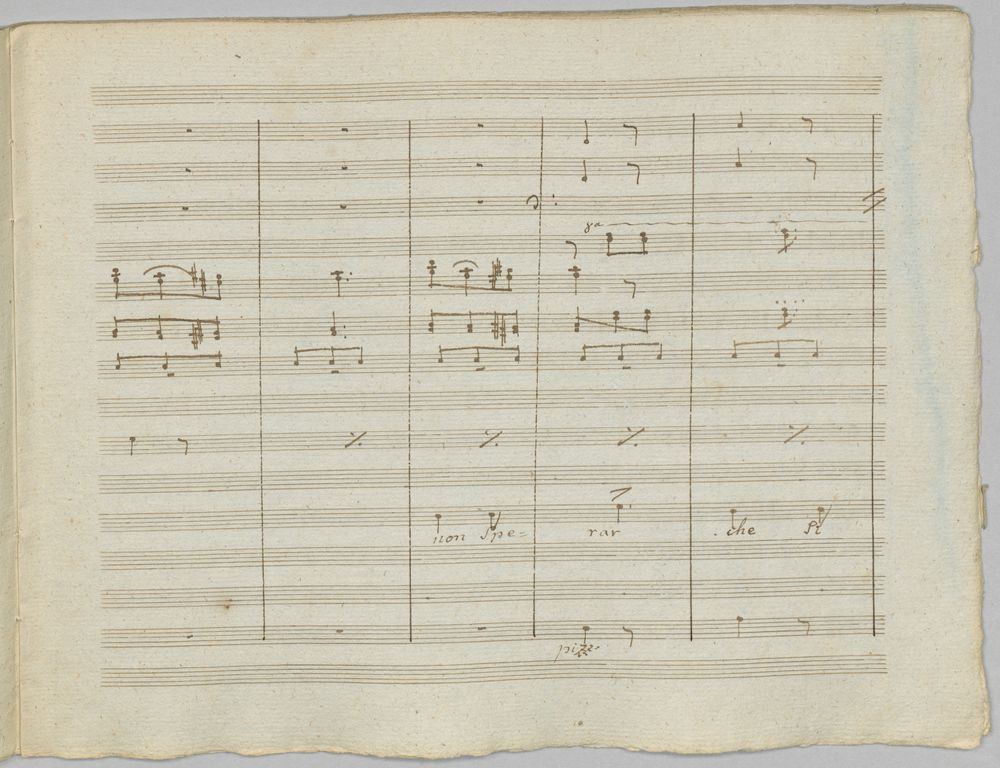 8a
non spe= rar che si
pizz.